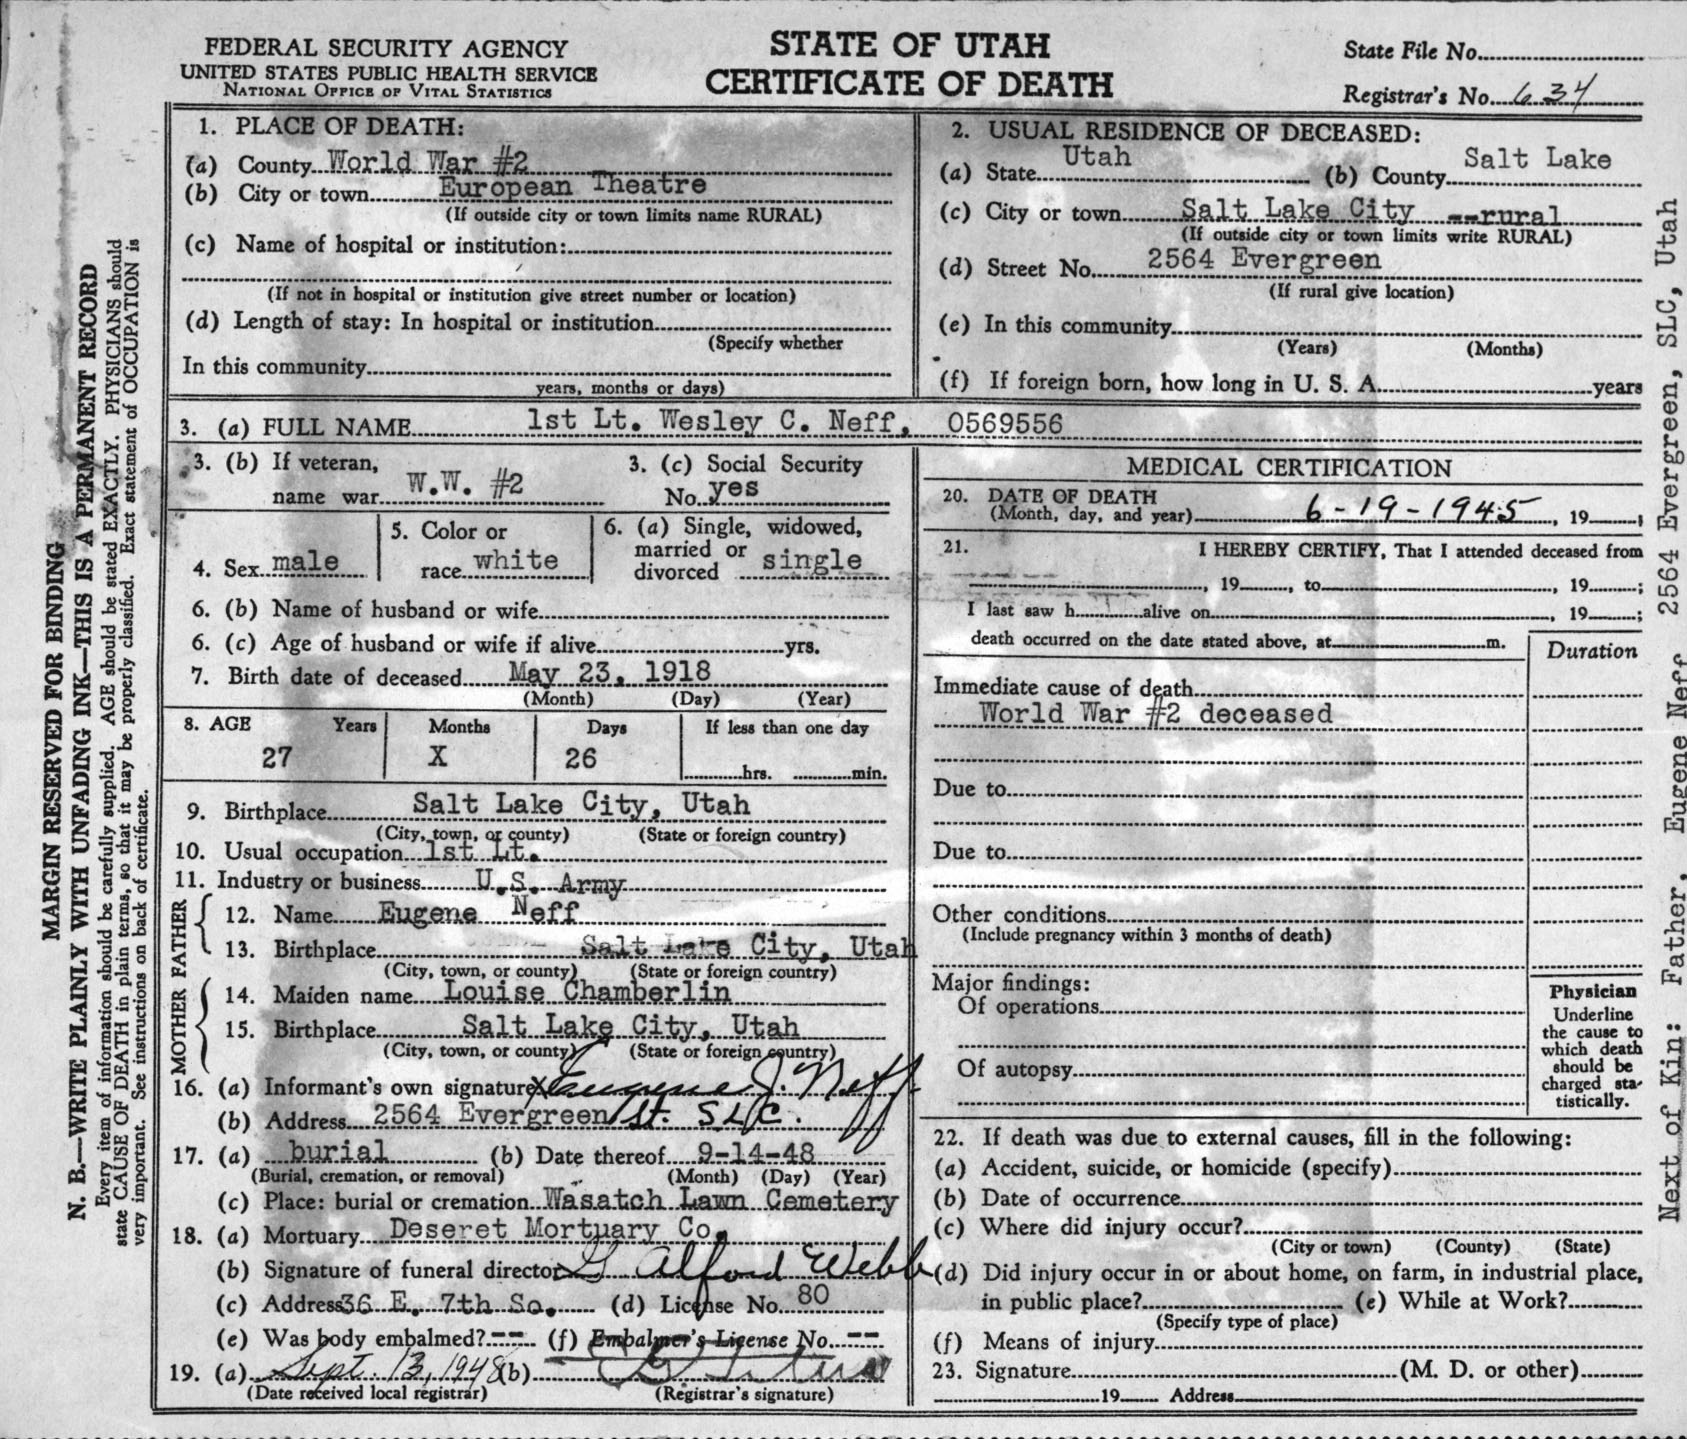 FEDERAL SECURITY AGENCY
UNITED STATES PUBLIC HEALTH SERVICE
NATIONAL OFFICE OF VITAL STATISTICS
STATE OF UTAH
CERTIFICATE OF DEATH
State File No.
Registrar's No. 634
1. PLACE OF DEATH:
(a) County World War #2
(b) City or town European Theatre
(If outside city or town limits name RURAL)
(c) Name of hospital or institution:
(If not in hospital or institution give street number or location)
(d) Length of stay: In hospital or institution
(Specify whether
In this community
years, months or days)
2. USUAL RESIDENCE OF DECEASED:
(a) State Utah (b) County Salt Lake
(c) City or town Salt Lake City --rural
(If outside city or town limits write RURAL)
(d) Street No. 2564 Evergreen
(If rural give location)
(e) In this community
(Years) (Months)
(f) If foreign born, how long in U. S. A. years
3. (a) FULL NAME 1st Lt. Wesley C. Neff, 0569556
3. (b) If veteran,
name war W.W. #2
3. (c) Social Security
No. yes
4. Sex male
5. Color or
race white
6. (a) Single, widowed,
married or
divorced single
6. (b) Name of husband or wife
6. (c) Age of husband or wife if alive yrs.
7. Birth date of deceased May 23, 1918
(Month) (Day) (Year)
8. AGE Years Months Days If less than one day
27 X 26 hrs. min.
9. Birthplace Salt Lake City, Utah
(City, town, or county) (State or foreign country)
10. Usual occupation 1st Lt.
11. Industry or business U.S. Army
FATHER
12. Name Eugene Neff
13. Birthplace Salt Lake City, Utah
(City, town, or county) (State or foreign country)
MOTHER
14. Maiden name Louise Chamberlin
15. Birthplace Salt Lake City, Utah
(City, town, or county) (State or foreign country)
16. (a) Informant's own signature X Eugene J. Neff
(b) Address 2564 Evergreen St. SLC.
17. (a) burial (b) Date thereof 9-14-48
(Burial, cremation, or removal) (Month) (Day) (Year)
(c) Place: burial or cremation Wasatch Lawn Cemetery
18. (a) Mortuary Deseret Mortuary Co.
(b) Signature of funeral director G Alford Webb
(c) Address 36 E. 7th So. (d) License No. 80
(e) Was body embalmed? -- (f) Embalmer's License No. --
19. (a) Sept. 13, 1948 (b)
(Date received local registrar) (Registrar's signature)
MEDICAL CERTIFICATION
20. DATE OF DEATH
(Month, day, and year) 6-19-1945, 19 ,
21. I HEREBY CERTIFY, That I attended deceased from
, 19 , to , 19 ;
I last saw h alive on , 19 ;
death occurred on the date stated above, at m.
Duration
Immediate cause of death
World War #2 deceased
Due to
Due to
Other conditions
(Include pregnancy within 3 months of death)
Major findings:
Of operations
Of autopsy
Physician
Underline
the cause to
which death
should be
charged sta-
tistically.
22. If death was due to external causes, fill in the following:
(a) Accident, suicide, or homicide (specify)
(b) Date of occurrence
(c) Where did injury occur?
(City or town) (County) (State)
(d) Did injury occur in or about home, on farm, in industrial place,
in public place? (e) While at Work?
(Specify type of place)
(f) Means of injury
23. Signature (M. D. or other)
19 Address
MARGIN RESERVED FOR BINDING
N. B.—WRITE PLAINLY WITH UNFADING INK—THIS IS A PERMANENT RECORD
Every item of information should be carefully supplied. AGE should be stated EXACTLY. PHYSICIANS should
state CAUSE OF DEATH in plain terms, so that it may be properly classified. Exact statement of OCCUPATION is
very important. See instructions on back of certificate.
Next of Kin: Father, Eugene Neff 2564 Evergreen, SLC, Utah